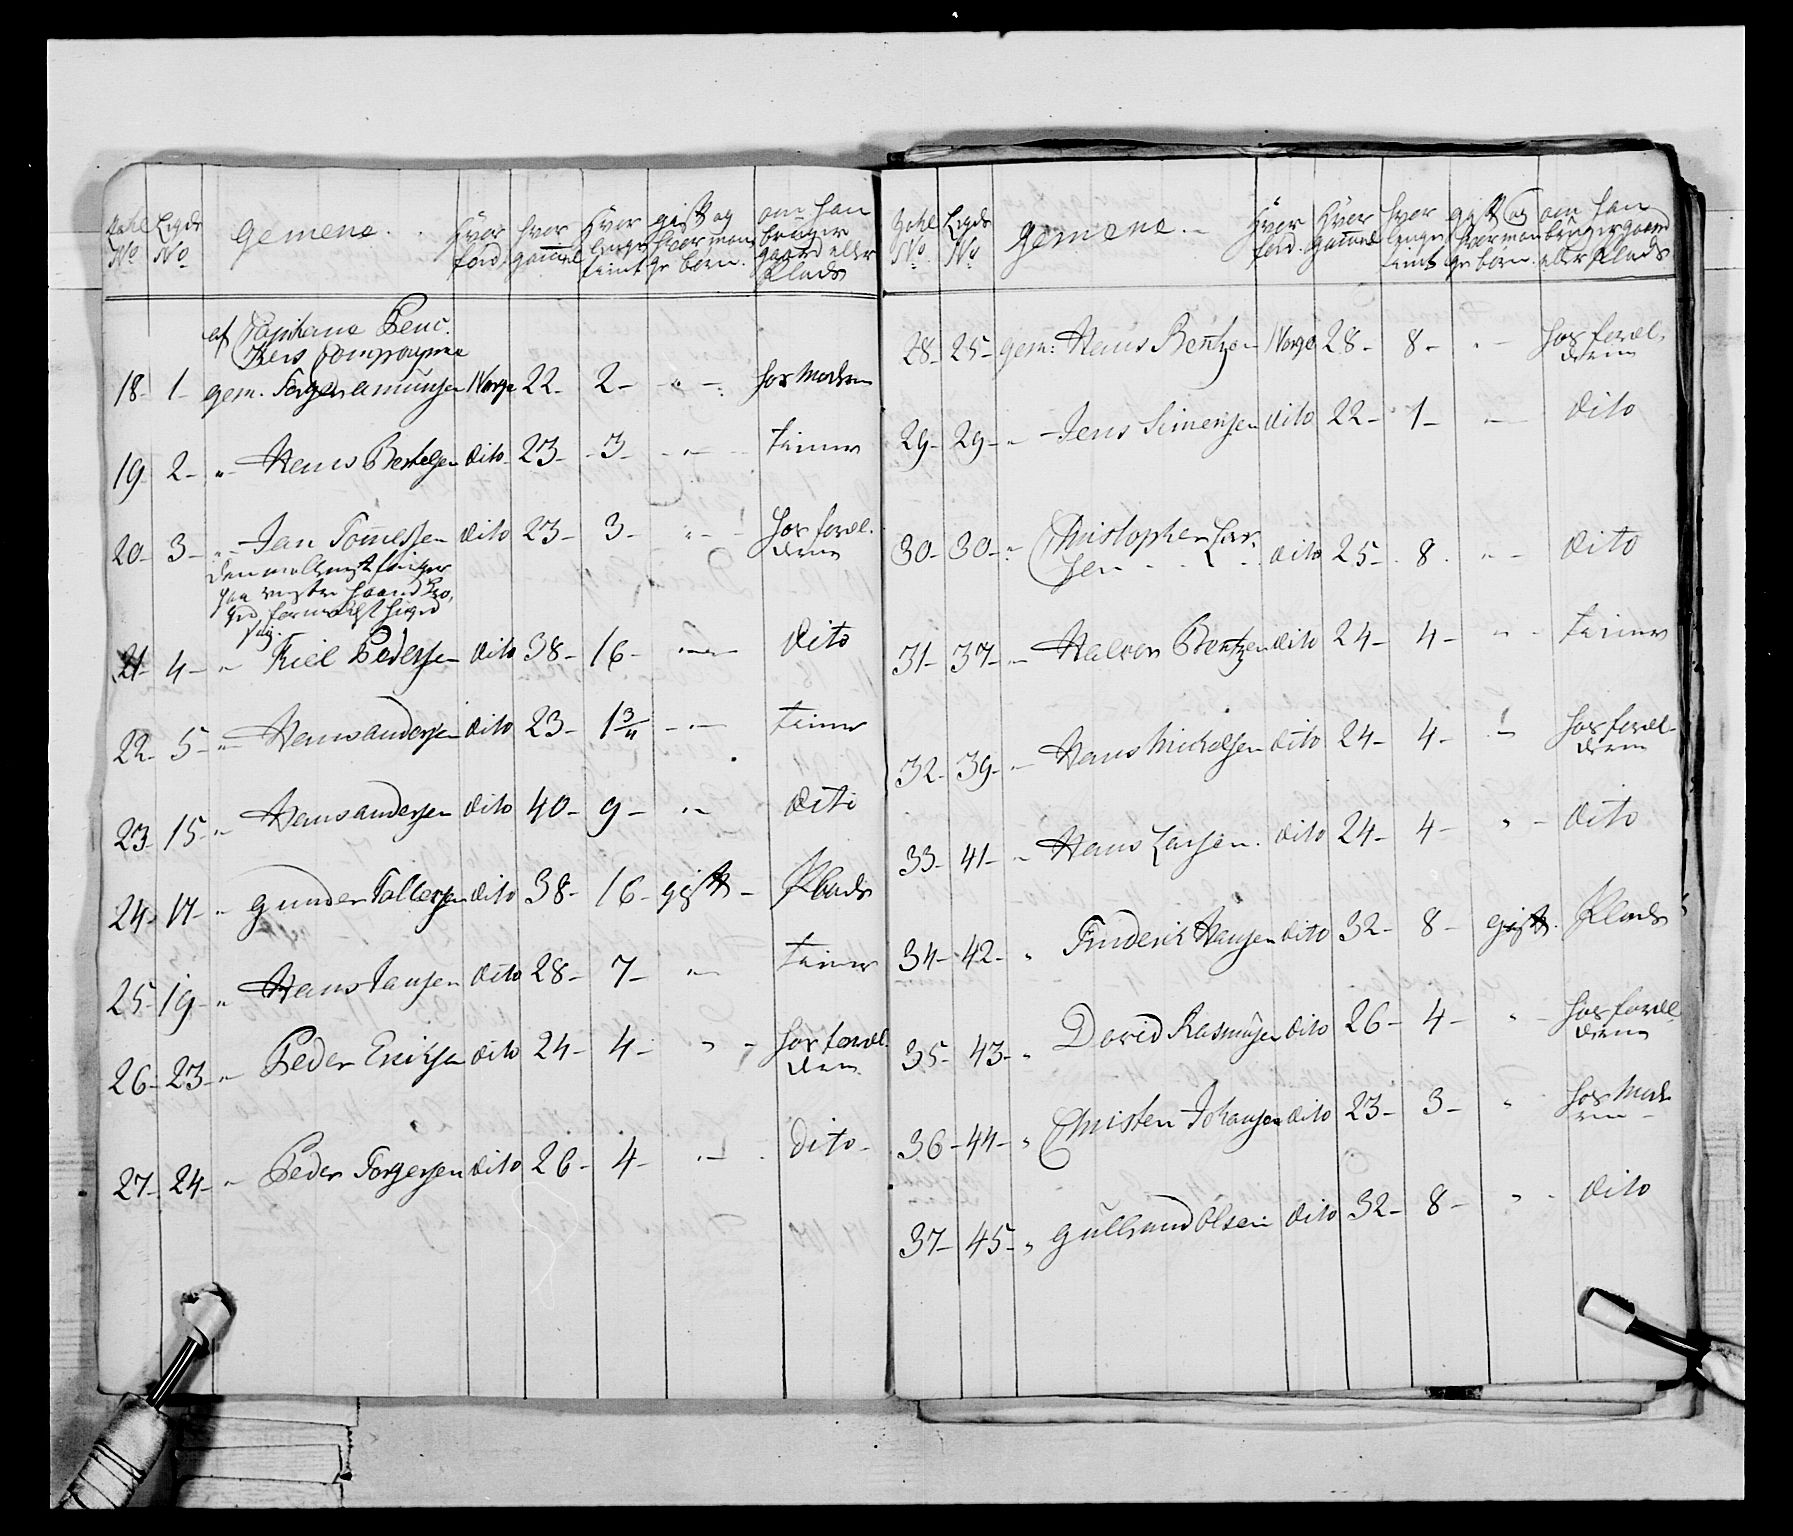 Tahl No | Legds No | Gemene. | Hvor fød. | hvor gammel | hvor lenge tient | gift og hvor mange børn. | om han bruger gaard eller Plads
af Capitaine
Compagnie
18- 1- gem. Torger Amunsen Norge 22- 2- " - hos Modren
19- 2- " Hans Bertelsen dito 23- 3- " tiener
20- 3- " Jan Tomessen dito 23- 3- " hos foræl-
drene
finger
paa haand
21 4- " Kiel Pedersen dito 38- 16- " dito
22- 5- " Hans Andersen dito 23- 1 3/4 " tiener
23 15- " Hans Andersen dito 40- 9- " dito
24- 17- " Gunder Tollersen dito 38- 16- gift - Plads
25- 19- " Hans Jansen dito 28- 7- " tiener
26- 23- " Peder Eriksen dito 24- 4- " hos foræl-
dren
27- 24- " Peder Torgersen dito 26- 4- " dito-
Tahl No. | Legds No | Gemene.- | Hvor fød. | Hvor gammel | hvor lenge tient | gift og hvor mange børn. | om han bruger gaard eller Plads
28- 25- gem: Hans Bentzen Norge 28- 8- " hos foræl-
drene
29- 29- " Jens Simensen dito 22- 1- " dito
30- 30- " Christopher Lar-
sen dito 25- 8. " dito
31- 37- " Halvor Bentzen dito 24- 4- " tiener
32- 39- " Hans Michelsen dito 24- 4- " hos foræl-
drene
33- 41- " Hans Larsen. dito 24- 4- " dito
34- 42- " Friderich Hansen dito 32- 8- gift. Plads
35- 43- " David Rasmusen dito 26- 4- " hos foræl-
drene
36- 44- " Christen Johansen dito 23- 3- " hos Mod-
ren
37- 45- " Gulbrand Olsen dito 32- 8- " dito